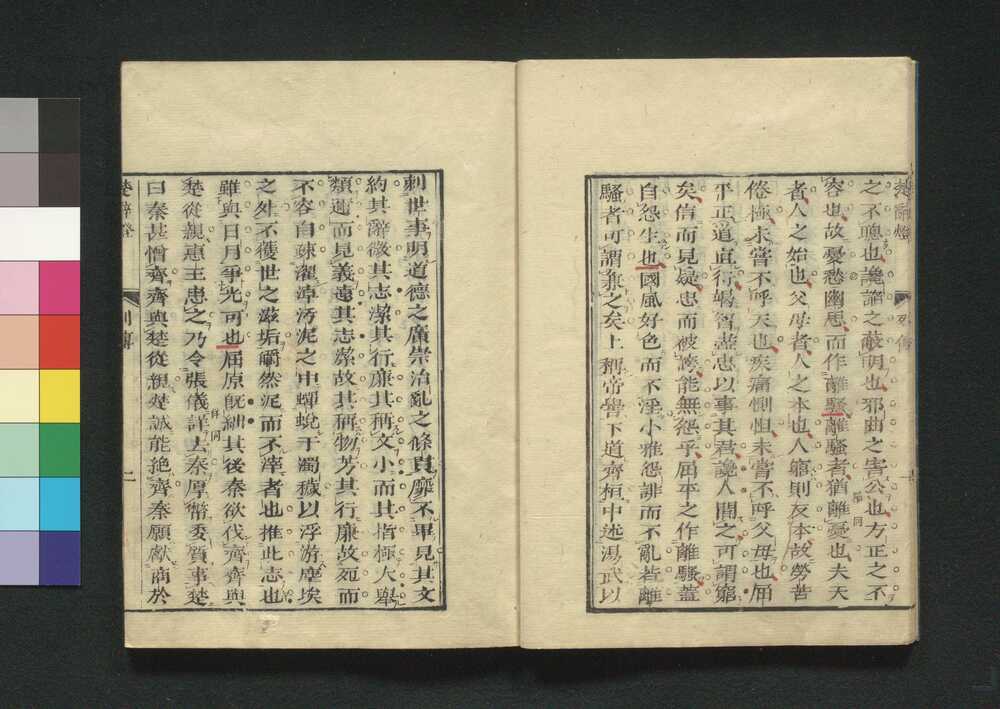 楚辭燈 列傳 一
之不聰也讒諂之蔽明也邪曲之害公也方正之不
容也故憂愁幽思而作離騷離騷者猶離憂也夫天
者人之始也父母者人之本也人窮則反本故勞苦
倦極未嘗不呼天也疾痛慘怛未嘗不呼父母也屈
平正道直行竭智盡忠以事其君讒人間之可謂窮
矣信而見疑忠而被謗能無怨乎屈平之作離騷蓋
自怨生也國風好色而不淫小雅怨誹而不亂若離
騷者可謂兼之矣上稱帝嚳下道齊桓中述湯武以
刺世事明道德之廣崇治亂之條貫靡不畢見其文
約其辭微其志潔其行廉其稱文小而其指極大舉
類邇而見義遠其志潔故其稱物芳其行廉故死而
不容自疎濯淖汚泥之中蟬蛻于濁穢以浮游塵埃
之外不獲世之滋垢皭然泥而不滓者也推此志也
雖與日月爭光可也屈原旣絀其後秦欲伐齊齊與
楚從親惠王患之乃令張儀詳去秦厚幣委質事楚
曰秦甚憎齊齊與楚從親楚誠能絶齊秦願獻商於
楚辭燈 列傳 二